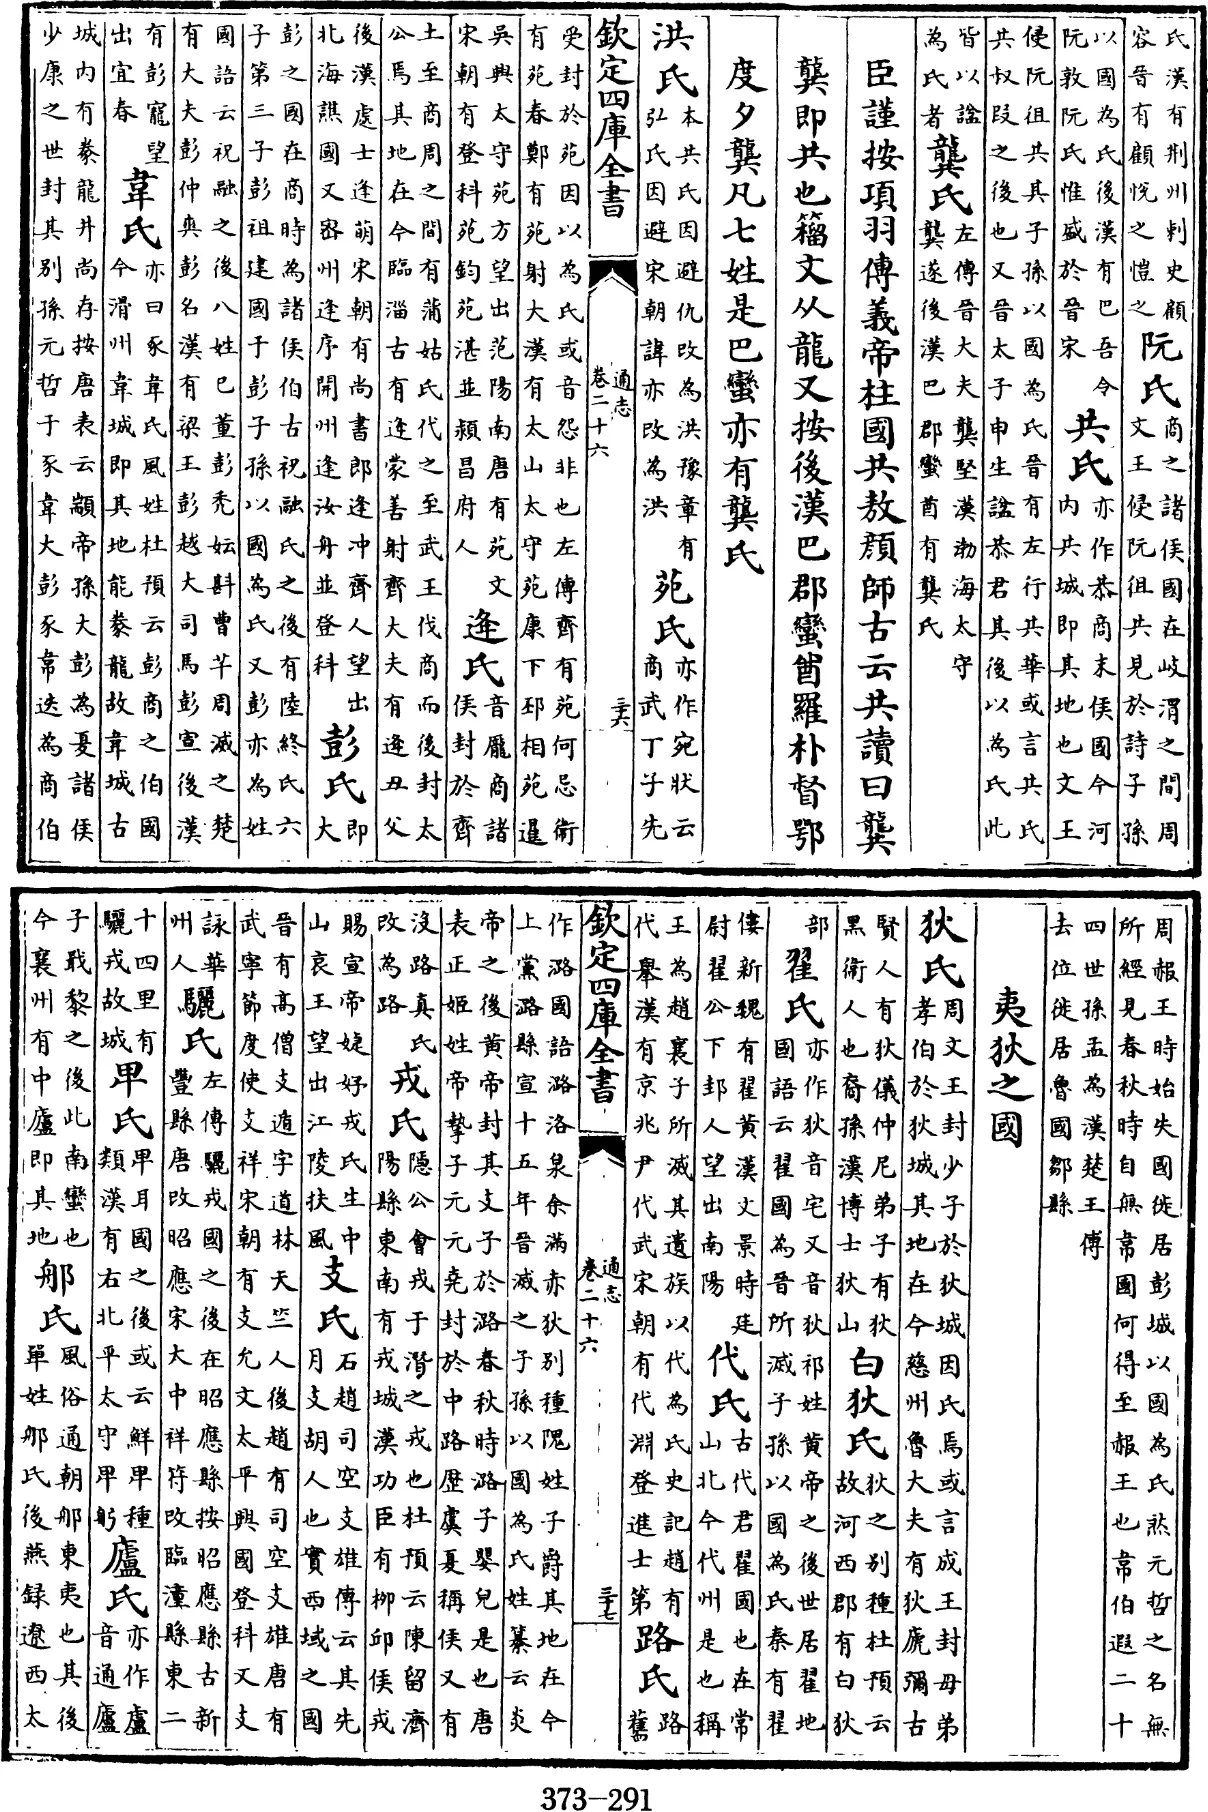 氏漢有荆州刺史顧
容晉有顧悅之愷之
阮氏
商之諸侯國在岐渭之間周
文王侵阮徂共見於詩子孫
以國為氏後漢有巴吾令
阮敦阮氏惟盛於晉宋
共氏
亦作恭商末侯國今河
内共城即其地也文王
侵阮徂共其子孫以國為氏晉有左行共華或言共氏
共叔段之後也又晉太子申生諡恭君其後以為氏此
皆以諡
為氏者
龔氏
左傳晉大夫龔堅漢渤海太守
龔遂後漢巴郡蠻酋有龔氏
臣謹按項羽傳義帝柱國共敖顔師古云共讀曰龔
龔即共也籀文从龍又按後漢巴郡蠻酋羅朴督鄂
度夕龔凡七姓是巴蠻亦有龔氏
洪氏
本共氏因避仇改為洪豫章有
弘氏因避宋朝諱亦改為洪
苑氏
亦作宛狀云
商武丁子先
欽定四庫全書
通志
卷二十六
三十六
受封於苑因以為氏或音怨非也左傳齊有苑何忌衛
有苑春鄭有苑射大漢有太山太守苑康下邳相苑暹
吳興太守苑方望出范陽南唐有苑文
宋朝有登科苑鈞苑湛並潁昌府人
逄氏
音龐商諸
侯封於齊
土至商周之間有蒲姑氏代之至武王伐商而後封太
公焉其地在今臨淄古有逄蒙善射齊大夫有逄丑父
後漢處士逄萌宋朝有尚書郎逄冲齊人望出
北海譙國又密州逄序開州逄汝舟並登科
彭氏
即
大
彭之國在商時為諸侯伯古祝融氏之後有陸終氏六
子第三子彭祖建國于彭子孫以國為氏又彭亦為姓
國語云祝融之後八姓已董彭秃妘斟曹芊周滅之楚
有大夫彭仲爽彭名漢有梁王彭越大司馬彭宣後漢
有彭寵望
出宜春
韋氏
亦曰豕韋氏風姓杜預云彭商之伯國
今滑州韋城即其地能豢龍故韋城古
城内有豢龍井尚存按唐表云顓帝孫大彭為夏諸侯
少康之世封其别孫元哲于豕韋大彭豕韋迭為商伯
周赧王時始失國徙居彭城以國為氏然元哲之名無
所經見春秋時自無韋國何得至赧王也韋伯遐二十
四世孫孟為漢楚王傅
去位徙居魯國鄒縣
夷狄之國
狄氏
周文王封少子於狄城因氏焉或言成王封母弟
孝伯於狄城其地在今慈州魯大夫有狄虒彌古
賢人有狄儀仲尼弟子有狄
黑衛人也裔孫漢博士狄山
白狄氏
狄之别種杜預云
故河西郡有白狄
部
翟氏
亦作狄音宅又音狄祁姓黄帝之後世居翟地
國語云翟國為晉所滅子孫以國為氏秦有翟
僂新魏有翟黄漢文景時廷
尉翟公下邽人望出南陽
代氏
古代君翟國也在常
山北今代州是也稱
王為趙襄子所滅其遺族以代為氏史記趙有
代舉漢有京兆尹代武宋朝有代淵登進士第
路氏
路
舊
欽定四庫全書
通志
卷二十六
三十七
作潞國語潞洛泉余滿赤狄别種隗姓子爵其地在今
上黨潞縣宣十五年晉滅之子孫以國為氏姓纂云炎
帝之後黄帝封其支子於潞春秋時潞子嬰兒是也唐
表正姬姓帝摯子元元堯封於中路歴虞夏稱侯又有
没路真氏
改為路
戎氏
隱公會戎于潛之戎也杜預云陳留濟
陽縣東南有戎城漢功臣有栁邱侯戎
賜宣帝婕妤戎氏生中
山哀王望出江陵扶風
支氏
石趙司空支雄傳云其先
月支胡人也實西域之國
晉有髙僧支遁字道林天竺人後趙有司空支雄唐有
武寧節度使支祥宋朝有支允文太平興國登科又支
詠華
州人
驪氏
左傳驪戎國之後在昭應縣按昭應縣古新
豐縣唐改昭應宋大中祥符改臨潼縣東二
十四里有
驪戎故城
甲氏
甲耳國之後或云鮮甲種
類漢有右北平太守甲躬
廬氏
亦作盧
音通廬
子戰黎之後此南蠻也
今襄州有中廬即其地
郍氏
風俗通朝郍東夷也其後
單姓郍氏後燕録遼西太
373-291